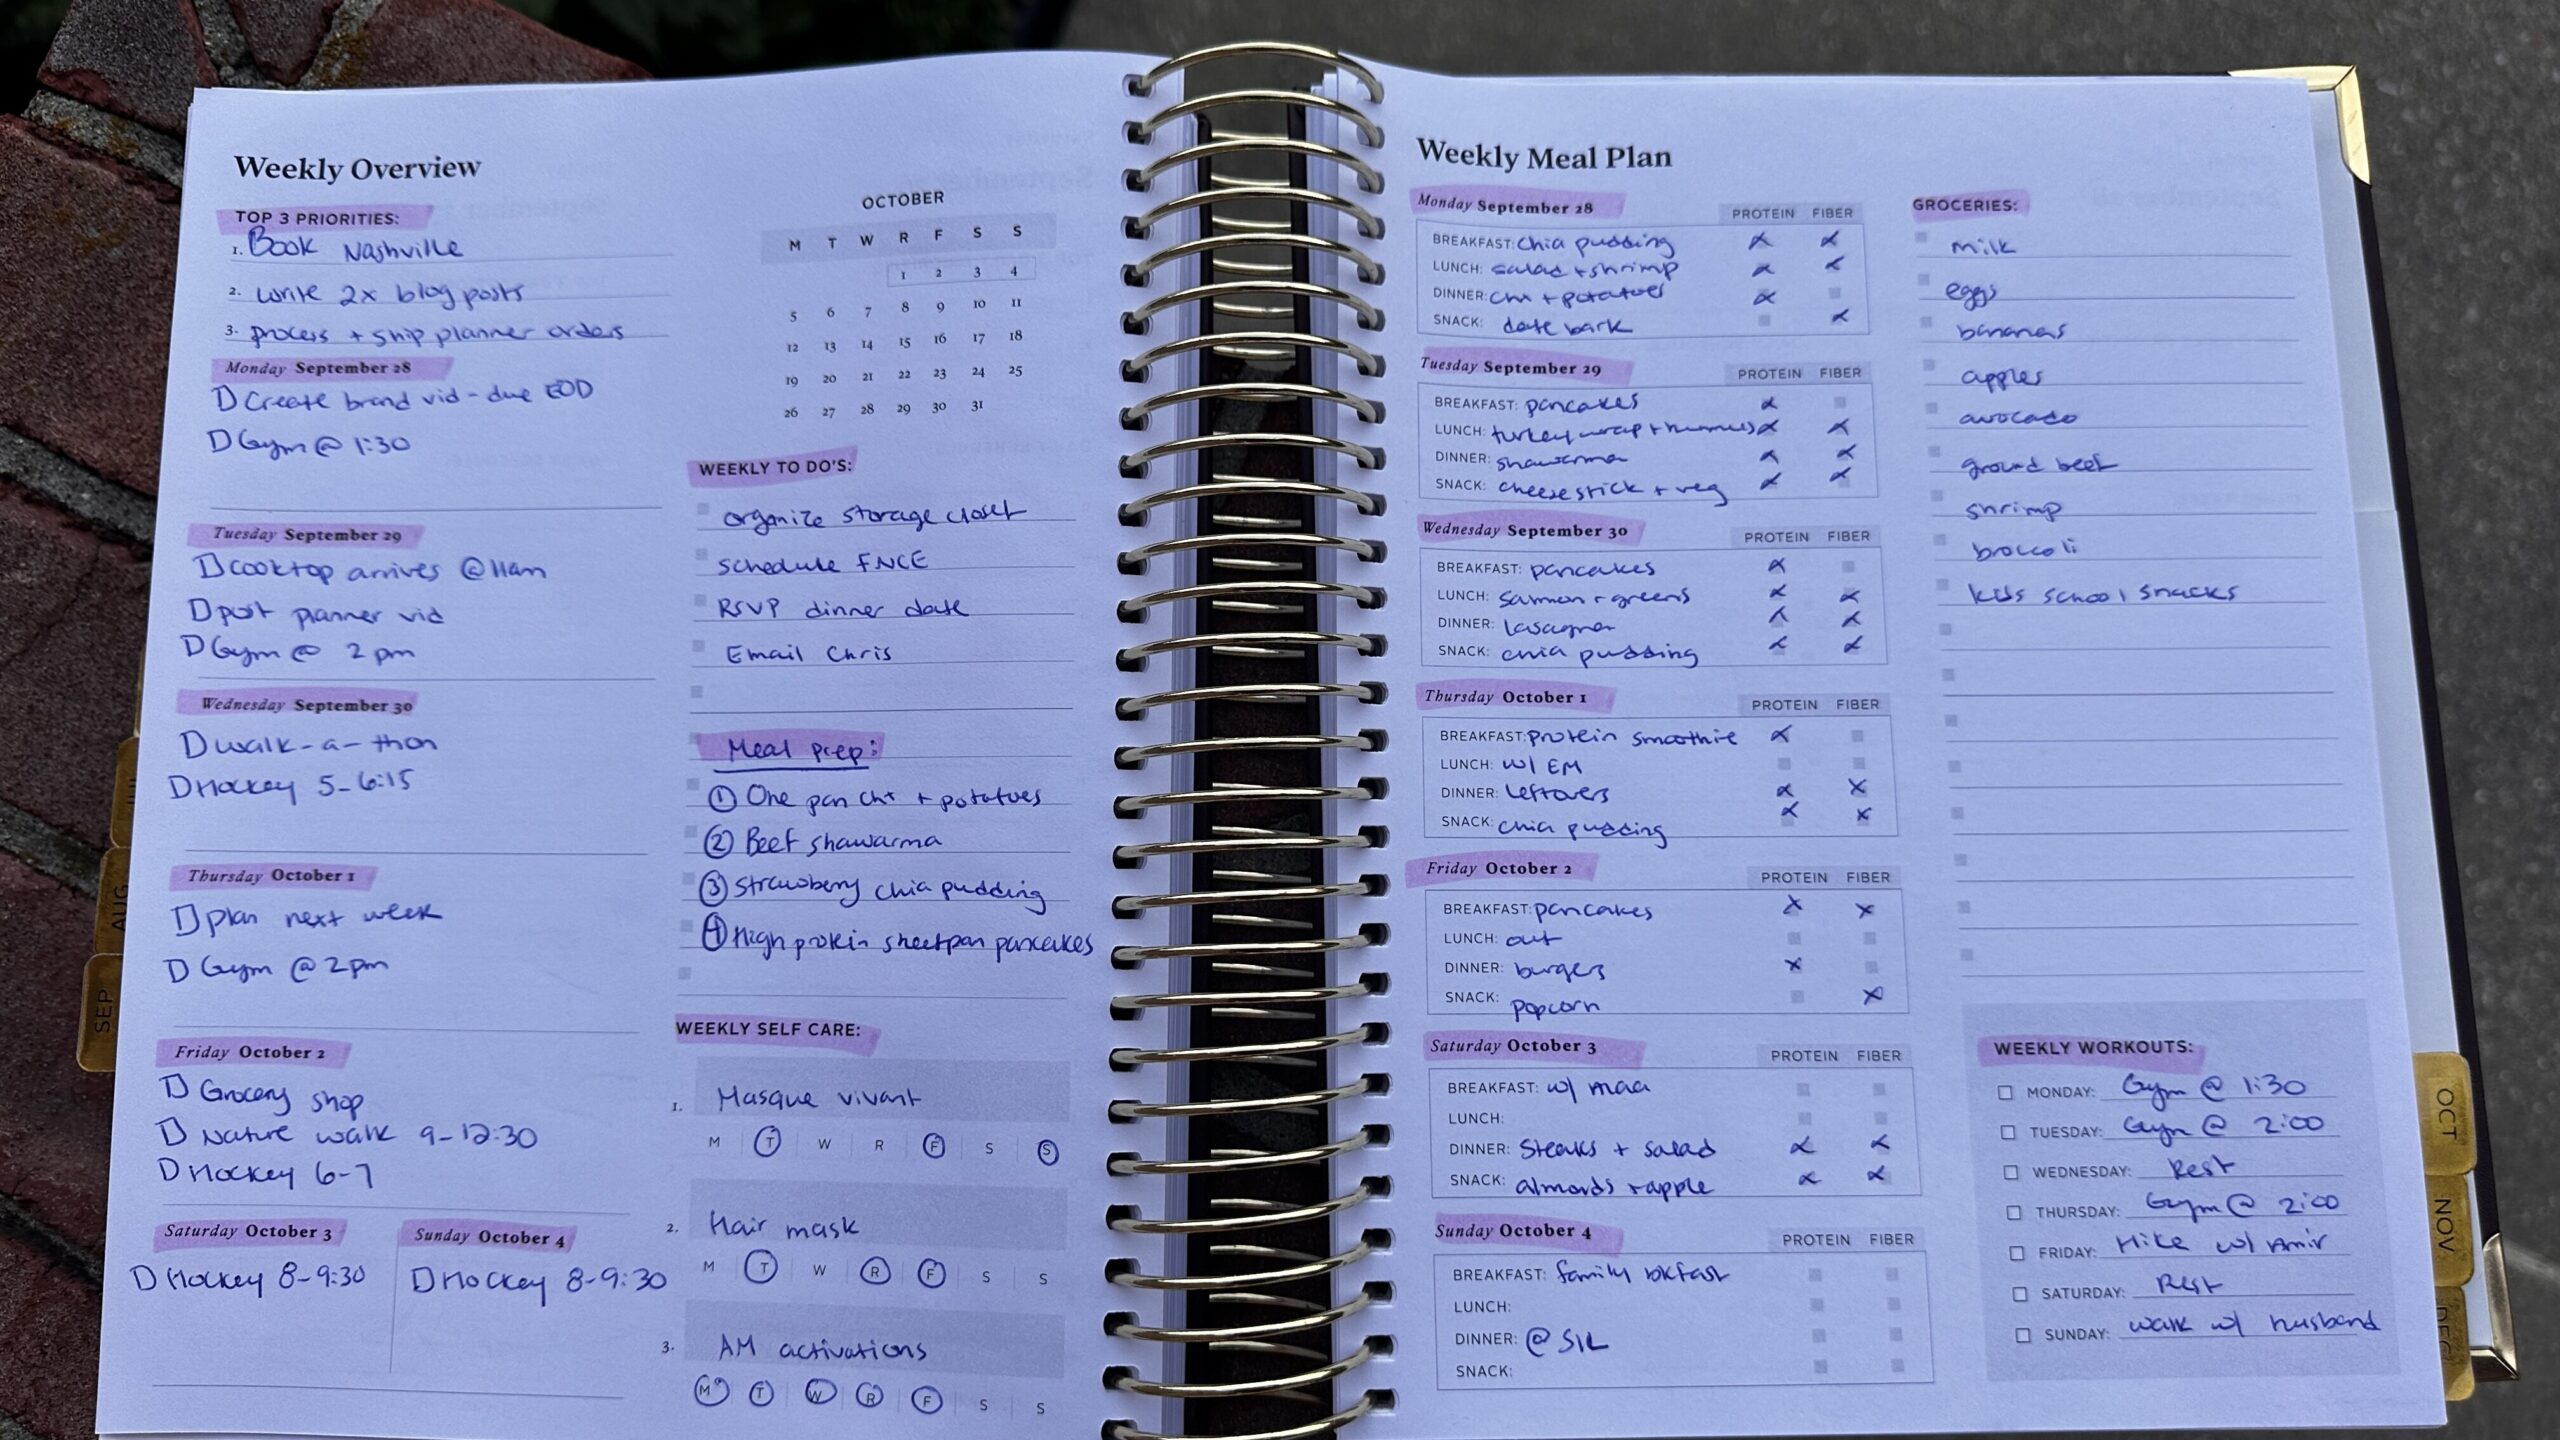 Weekly Overview
TOP 3 PRIORITIES:
1. Book Nashville
2. write 2x blog posts
3. process + ship planner orders
Monday September 28
Create brand vid - due EOD
Gym @ 1:30
Tuesday September 29
cooktop arrives @ 11am
post planner vid
Gym @ 2pm
Wednesday September 30
walk-a-thon
Hockey 5-6:15
Thursday October 1
plan next week
Gym @ 2pm
Friday October 2
Grocery shop
Nature walk 9-12:30
Hockey 6-7
Saturday October 3
Hockey 8-9:30
Sunday October 4
Hockey 8-9:30
OCTOBER
M T W R F S S
1 2 3 4
5 6 7 8 9 10 11
12 13 14 15 16 17 18
19 20 21 22 23 24 25
26 27 28 29 30 31
WEEKLY TO DO'S:
organize storage closet
schedule FNCE
RSVP dinner date
Email Chris
Meal prep:
1 One pan chx + potatoes
2 Beef shawarma
3 Strawberry chia pudding
4 High protein sheetpan pancakes
WEEKLY SELF CARE:
1. Masque vivant
M T W R F S S
2. Hair mask
M T W R F S S
3. AM activations
M T W R F S S
AUG
SEP
Weekly Meal Plan
Monday September 28 PROTEIN FIBER
BREAKFAST: chia pudding x x
LUNCH: salad + shrimp x x
DINNER: chx + potatoes x
SNACK: date bark x
Tuesday September 29 PROTEIN FIBER
BREAKFAST: pancakes x
LUNCH: turkey wrap + hummus x x
DINNER: shawarma x x
SNACK: cheese stick + veg x x
Wednesday September 30 PROTEIN FIBER
BREAKFAST: pancakes x
LUNCH: salmon + greens x x
DINNER: lasagna x x
SNACK: chia pudding x x
Thursday October 1 PROTEIN FIBER
BREAKFAST: protein smoothie x
LUNCH: w/ EM
DINNER: leftovers x x
SNACK: chia pudding x x
Friday October 2 PROTEIN FIBER
BREAKFAST: pancakes x x
LUNCH: out
DINNER: burgers x
SNACK: popcorn x
Saturday October 3 PROTEIN FIBER
BREAKFAST: w/ maa
LUNCH:
DINNER: Steaks + salad x x
SNACK: almonds + apple x x
Sunday October 4 PROTEIN FIBER
BREAKFAST: family bkfast
LUNCH:
DINNER: @ SIL
SNACK:
GROCERIES:
milk
eggs
bananas
apples
avocado
ground beef
shrimp
broccoli
kids school snacks
WEEKLY WORKOUTS:
MONDAY: Gym @ 1:30
TUESDAY: Gym @ 2:00
WEDNESDAY: Rest
THURSDAY: Gym @ 2:00
FRIDAY: Hike w/ Amir
SATURDAY: Rest
SUNDAY: walk w/ husband
OCT
NOV
DEC